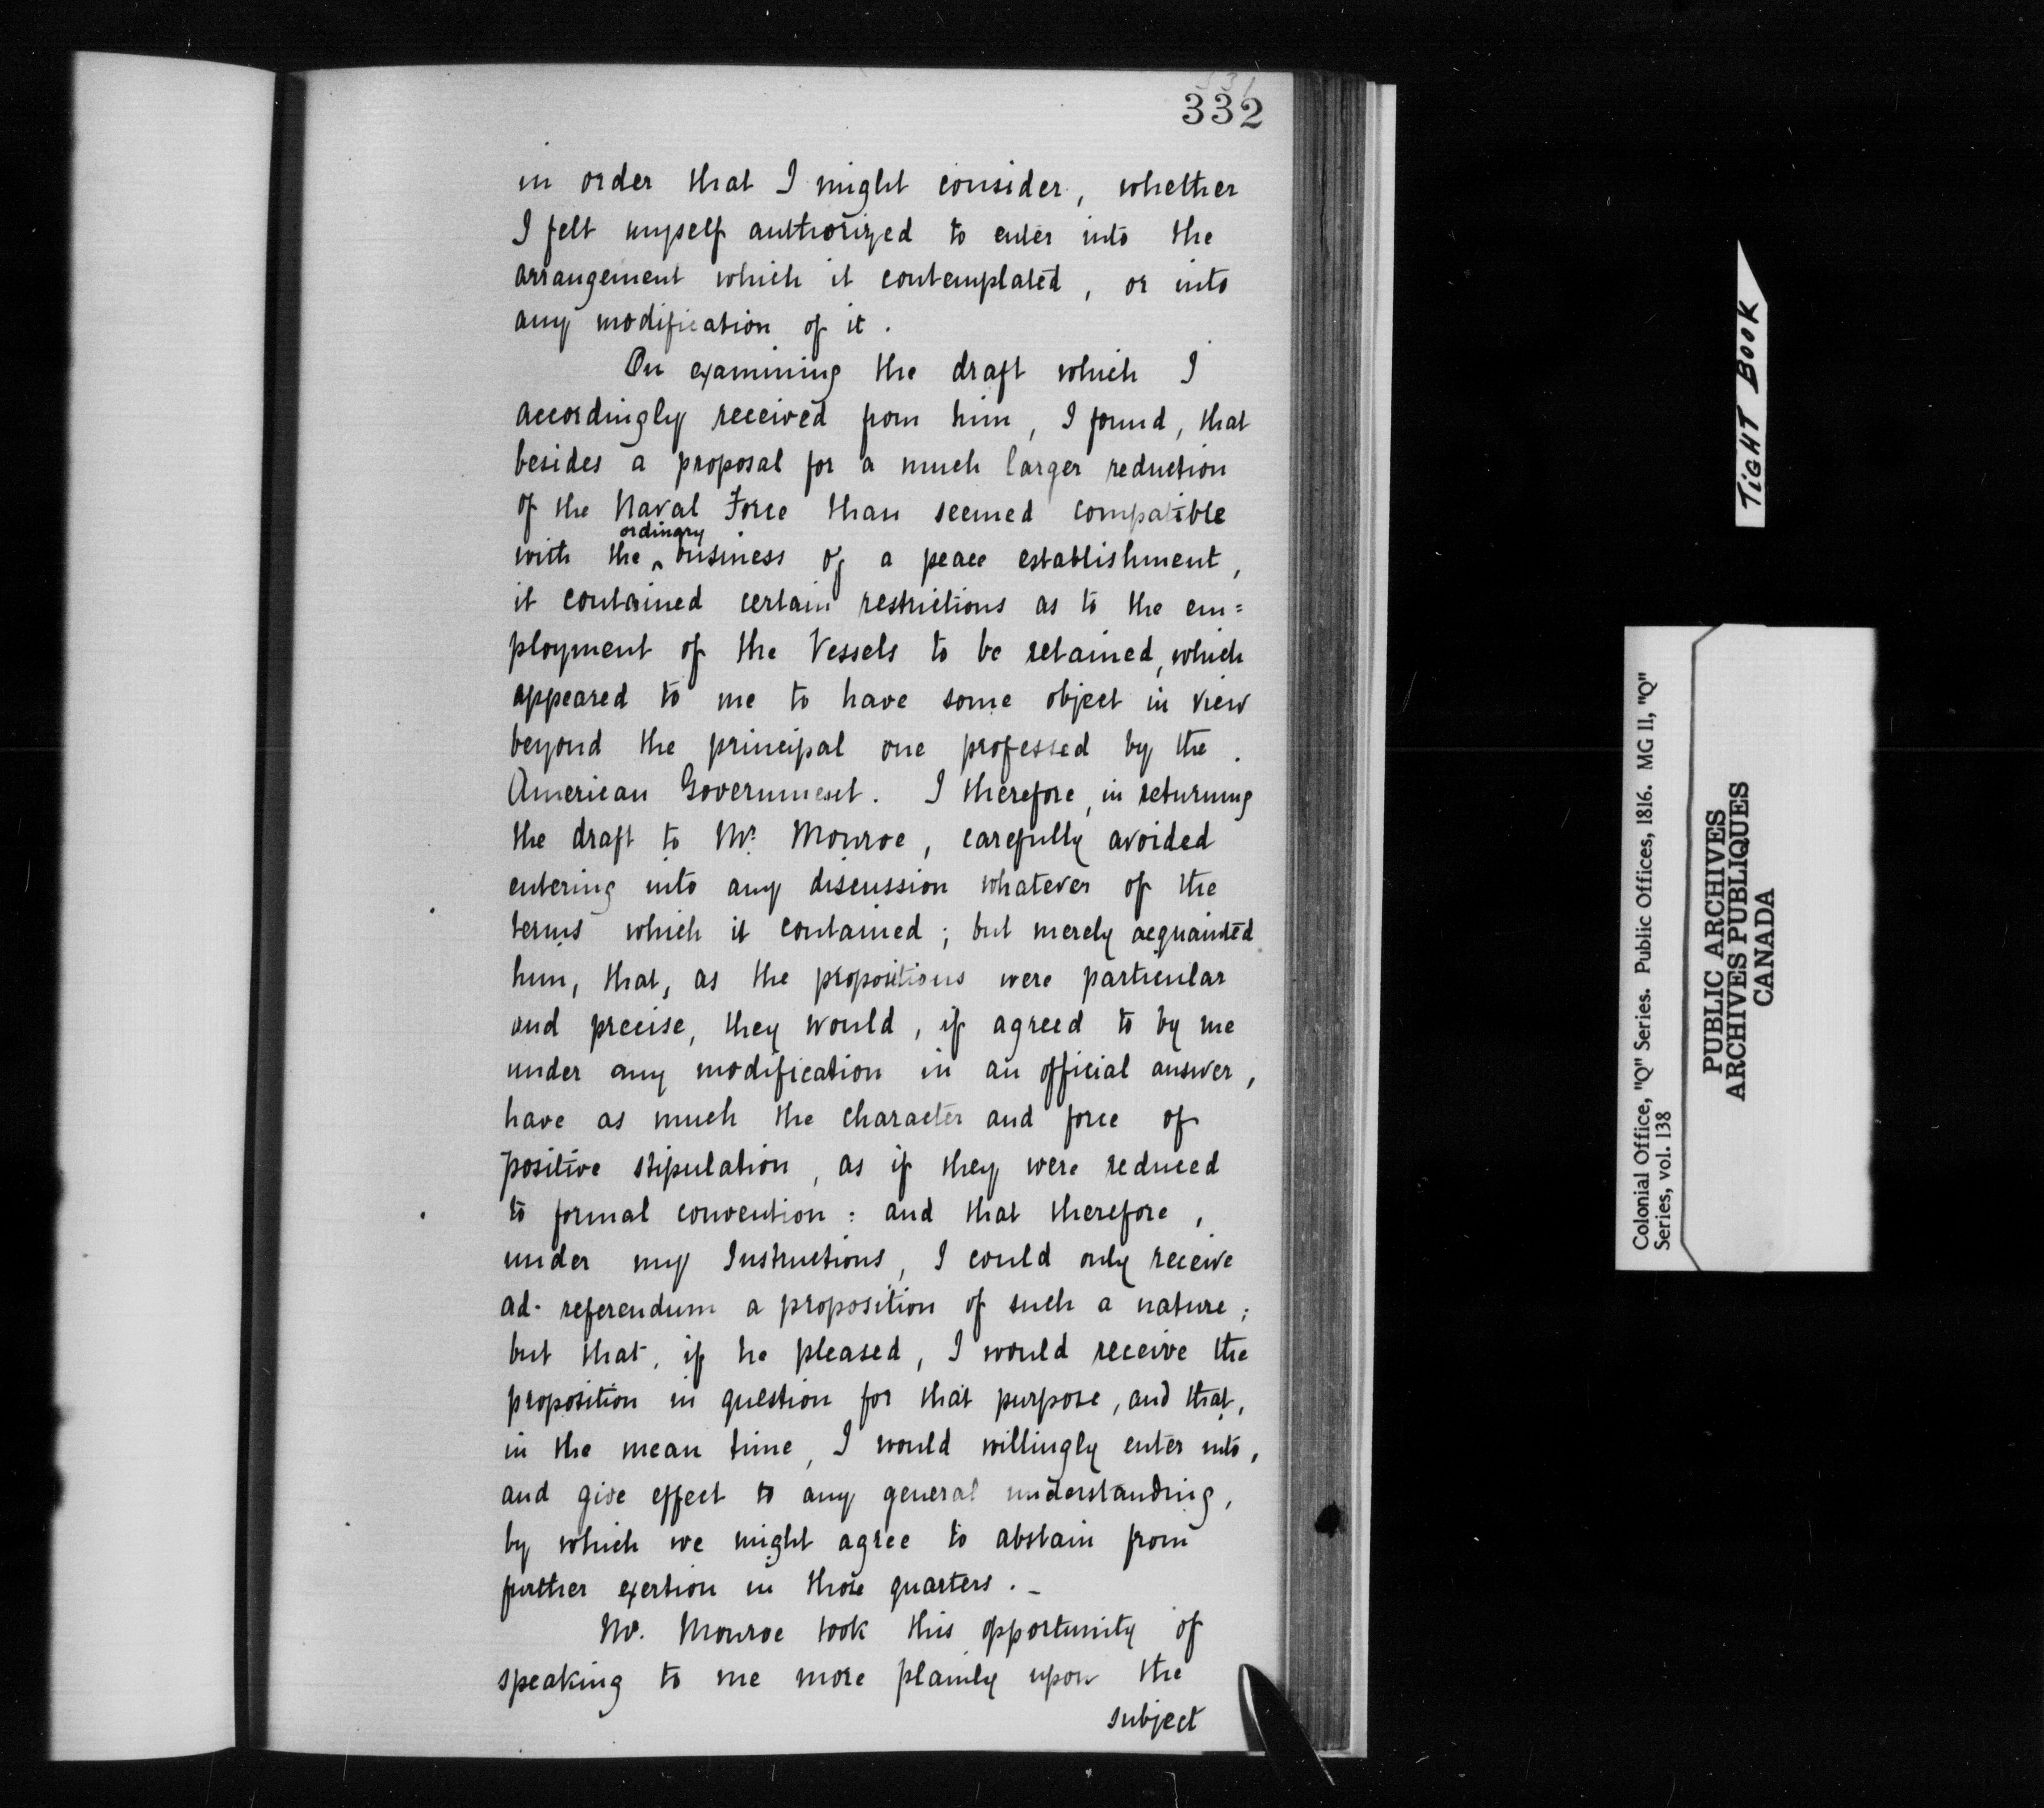 332
in order that I might consider, whether
I felt myself authorized to enter into the
arrangement which it contemplated, or into
any modification of it.
On examining the draft which I
accordingly received from him, I found, that
besides a proposal for a much larger reduction
of the Naval Force than seemed compatible
ordinary
with the ‸ business of a peace establishment,
it contained certain restrictions as to the em=
ployment of the Vessels to be retained, which
appeared to me to have some object in view
beyond the principal one professed by the
American Government. I therefore, in returning
the draft to Mr. Monroe, carefully avoided
entering into any discussion whatever of the
terms which it contained; but merely acquainted
him, that, as the propositions were particular
and precise, they would, if agreed to by me
under any modification in an official answer,
have as much the character and force of
positive stipulation, as if they were reduced
to formal convention: and that therefore,
under my Instructions, I could only receive
ad-referendum a proposition of such a nature;
but that, if he pleased, I would receive the
proposition in question for that purpose, and that,
in the mean time, I would willingly enter into,
and give effect to any general understanding,
by which we might agree to abstain from
further exertion in those quarters. _
Mr. Monroe took this opportunity of
speaking to me more plainly upon the
subject
TIGHT BOOK
Colonial Office, "Q" Series. Public Offices, 1816. MG 11, "Q"
Series, vol. 138
PUBLIC ARCHIVES
ARCHIVES PUBLIQUES
CANADA